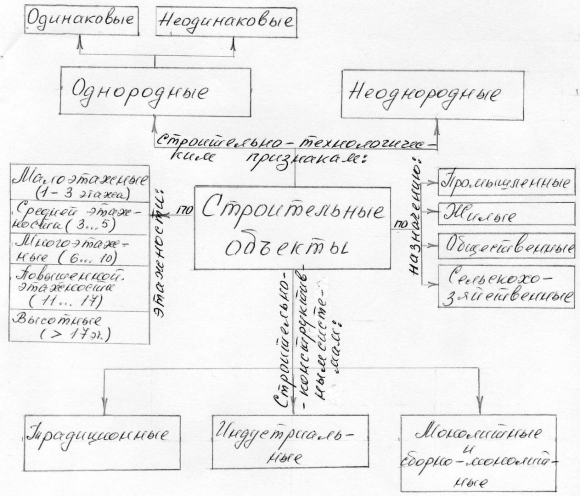 Одинаковые
Неодинаковые
Однородные
Неоднородные
строительно-технологичес-
ким признакам:
Малоэтажные
(1-3 этажа)
Средней этаж-
ности (3...5)
Многоэтаж-
ные (6...10)
Повышенной
этажности
(11... 17)
Высотные
(> 17 эт.)
этажности:
по
Строительные
объекты
по
назначению:
Промышленные
Жилые
Общественные
Сельскохо-
зяйственные
Строительно-
-конструктив-
ным систе-
мам:
Традиционные
Индустриаль-
ные
Монолитные
и
сборно-монолит-
ные